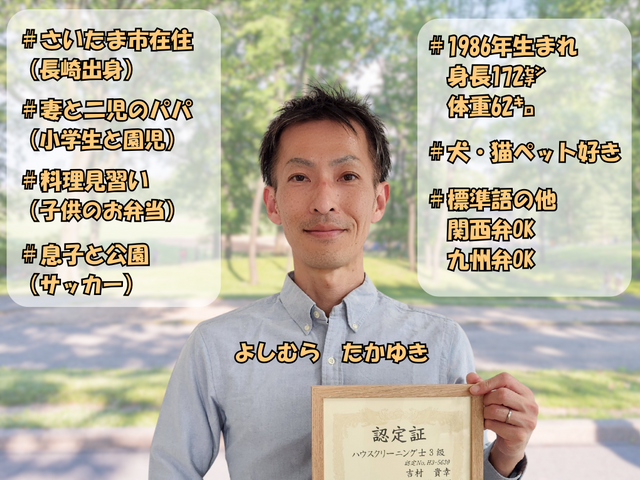 #さいたま市在住
（長崎出身）
#妻と二児のパパ
（小学生と園児）
#料理見習い
（子供のお弁当）
#息子と公園
（サッカー）
#1986年生まれ
身長172㌢
体重62㌔
#犬・猫ペット好き
#標準語の他
関西弁OK
九州弁OK
よしむら たかゆき
認定証
ハウスクリーニング士3級
認定No.H3-5620
吉村 貴幸